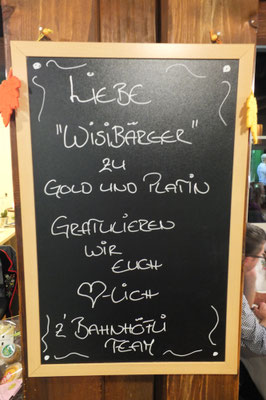 LIEBE
"WISIBÄRGER"
ZU
GOLD UND PLATIN
GRATULIEREN
WIR
EUCH
♡-LICH
Z'BAHNHÖFLI
TEAM